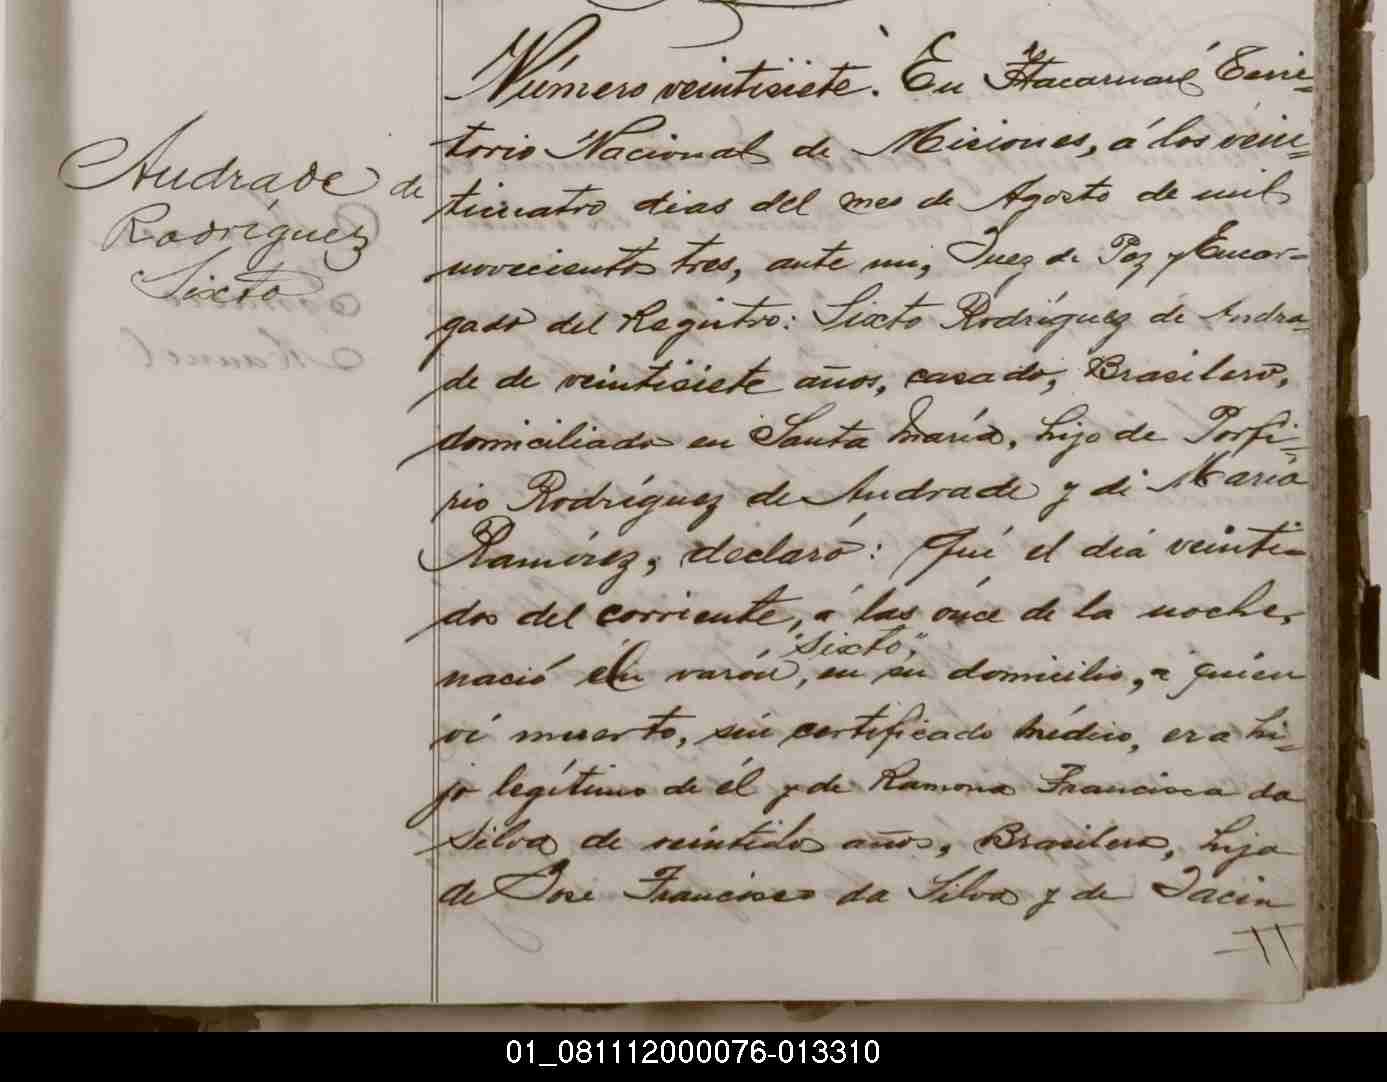 Andrade de
Rodríguez
Sixto
Número veintisiete. En Itacaruaré Terri-
torio Nacional de Misiones, á los vein-
ticuatro dias del mes de Agosto de mil
novecientos tres, ante mi, Juez de Paz y Encar-
gado del Registro: Sixto Rodríguez de Andra-
de de veintisiete años, casado, Brasilero,
domiciliado en Santa María, hijo de Porfi-
rio Rodríguez de Andrade y de María
Ramírez, declaró: Qué el dia veinti-
dos del corriente, á las ónce de la noche,
"Sixto,"
nació el varón, en su domicilio, a quien
ví muerto, sin certificado médico, era hi-
jo legítimo de él y de Ramona Francisca da
Silva de veintidos años, Brasilera, hija
de José Francisco da Silva y de Jacin
01_081112000076-013310